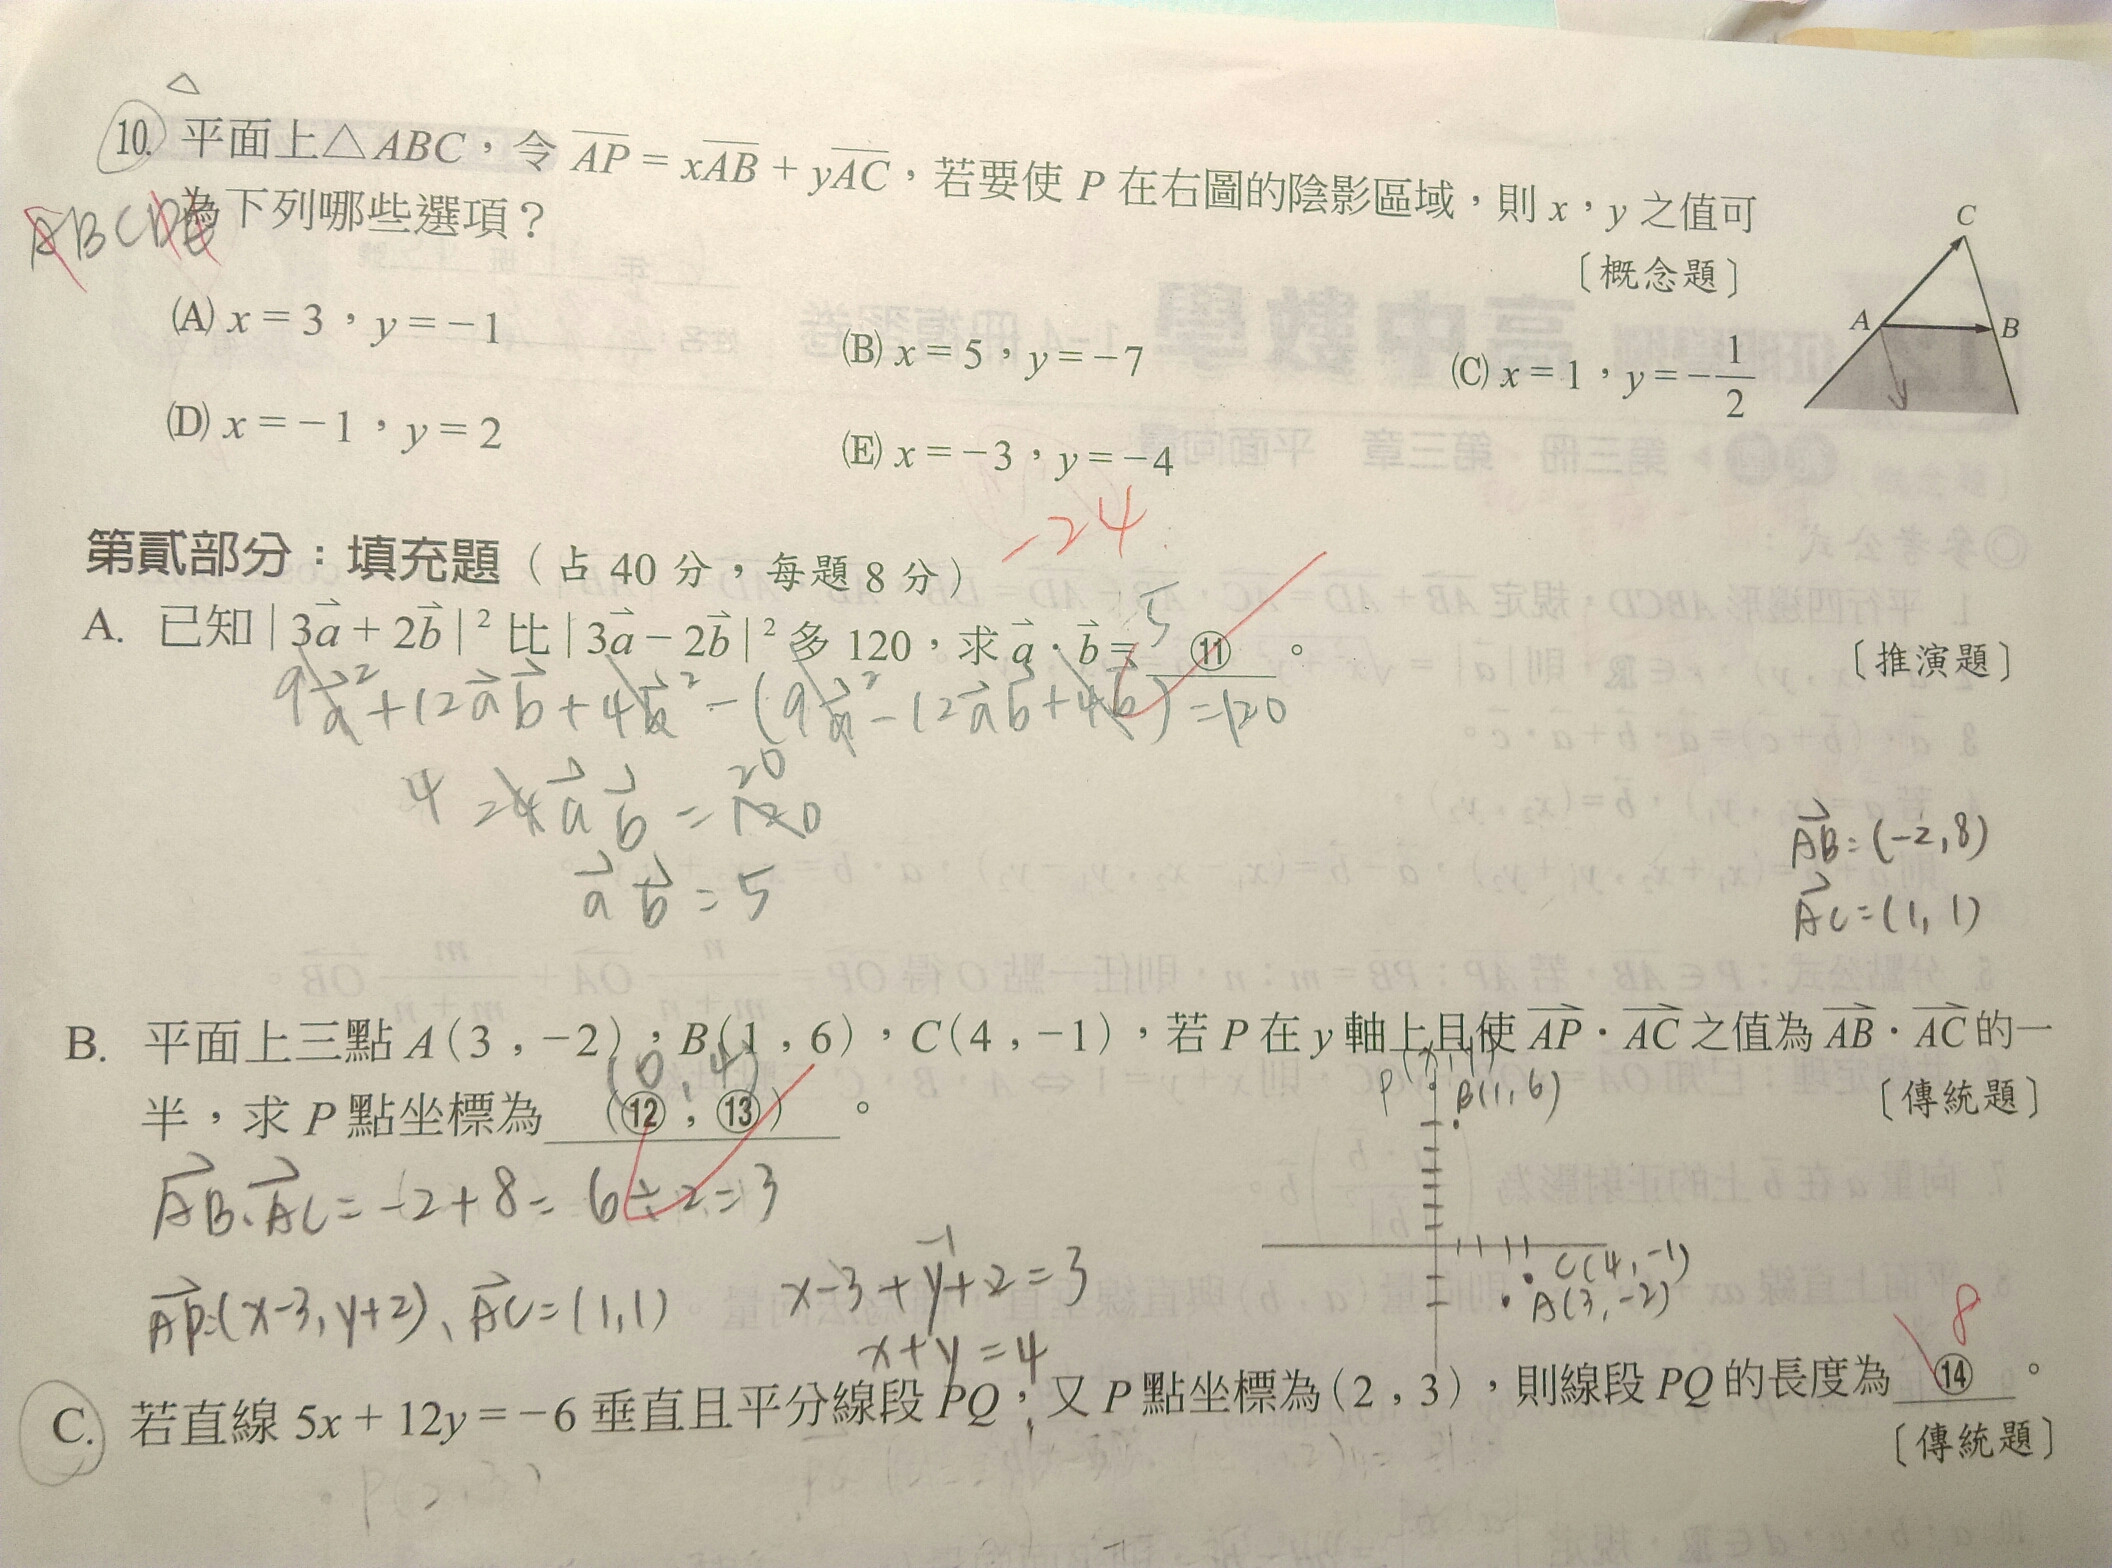 △
10. 平面上△ABC，令 AP = xAB + yAC，若要使 P 在右圖的陰影區域，則 x，y 之值可
為下列哪些選項？
〔概念題〕
ABCDE
(A) x = 3，y = −1
(B) x = 5，y = −7
(C) x = 1，y = −1/2
(D) x = −1，y = 2
(E) x = −3，y = −4
C
A
B
−24
第貳部分：填充題（占 40 分，每題 8 分）
A. 已知 | 3a + 2b |² 比 | 3a − 2b |² 多 120，求 a · b = 5 ⑪ 。
〔推演題〕
9a² + 12ab + 4b² − (9a² − 12ab + 4b²) = 120
4 24ab = 120 20
ab = 5
AB = (-2, 8)
AC = (1, 1)
B. 平面上三點 A(3，−2)，B(1，6)，C(4，−1)，若 P 在 y 軸上且使 AP · AC 之值為 AB · AC 的一
半，求 P 點坐標為 (⑫，⑬) 。
(0, 4)
〔傳統題〕
P(x, y)
B(1, 6)
AB·AC = -2 + 8 = 6 ÷ 2 = 3
C(4, -1)
A(3, -2)
AP = (x-3, y+2)、AC = (1, 1)
x-3+y+2=3
-1
x+y=4
8
C. 若直線 5x + 12y = −6 垂直且平分線段 PQ，又 P 點坐標為(2，3)，則線段 PQ 的長度為 ⑭ 。
〔傳統題〕